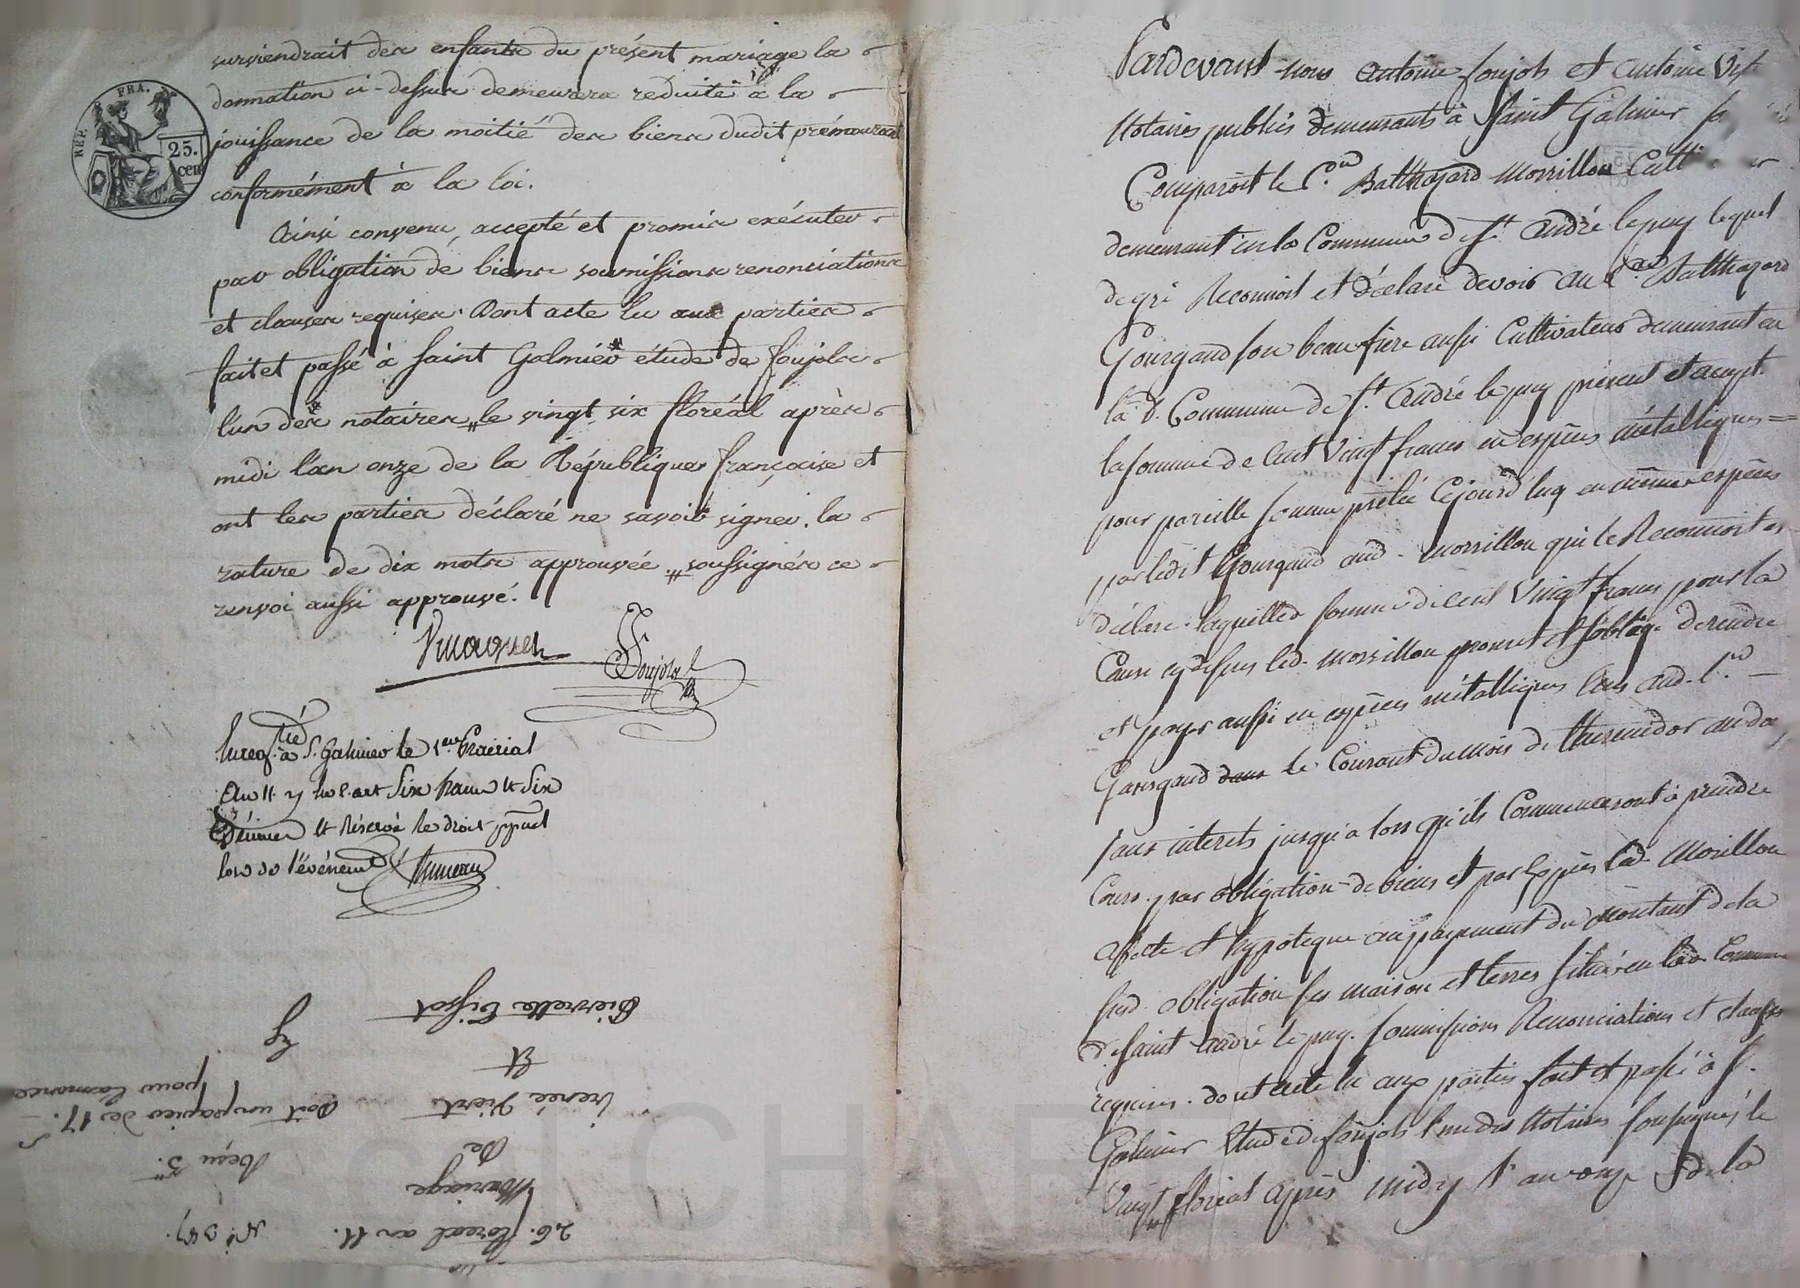 surviendrait des enfants du présent mariage la
donnation ci-dessus demeurera reduite à la
jouissance de la moitié des biens dudit prémourant
conformément à la loi.
Ainsi convenu, accepté et promis exécuter
par obligation de biens soumissions renonciations
et clauses requises. Dont acte lu aux parties
fait et passé à Saint Galmier étude de Foujols
l'un des notaires le vingt six floréal après
midi l'an onze de la République française et
ont les parties déclaré ne savoir signer. la
rature de dix mots approuvée. soussignés ce
renvoi aussi approuvé.
Foujols
Enreg.tré à S. Galmier le 1er Prairial
an 11. six francs & six
& réservé le droit
lors de l'événement
REP. FRA.
25.
cen
26. floréal an 11. N.o
Mariage
De
Irenée
Et
Pierrette Tissot
Reçu 3.
Doit un papier de 17. s
pour
Pardevant nous Antoine Foujols et Antoine
Notaires publics demeurants à Saint Galmier
Comparoit le C.en Balthazard Morrillon
demeurant en la Commune de S.t André le puy lequel
de gré Reconnoit et déclare devoir au C.en Balthazard
Gourgaud son beaufrère aussi Cultivateur demeurant en
la d. Commune de S.t André le puy présent et accept.
la somme de Cent Vingt francs en espèces métalliques =
pour pareille somme prêtée Cejourd'huy en mêmes espèces
par ledit Gourgaud aud. Morrillon qui le Reconnoit et
déclare. laquelle somme de Cent Vingt francs pour la
Cause cydessus led. Morrillon promet et s'oblige de rendre
et payer aussi en espèces métalliques aud. C.en
Gourgaud dans le Courant du mois de thermidor
sans interets jusqu'a lors qu'ils Commenceront à prendre
Cours. par obligation de biens et par Exprès led. Morillon
afecte et hypoteque au payement du montant de la
sud. obligation ses maison et terres situés en lad. Commune
de Saint André le puy. Soumissions Renonciations et clauses
requises. dont acte lu aux parties fait et passé à S.
Galmier Etude de Foujols l'un des Notaires soussignés le
Vingt floréal après midy l'an onze de la